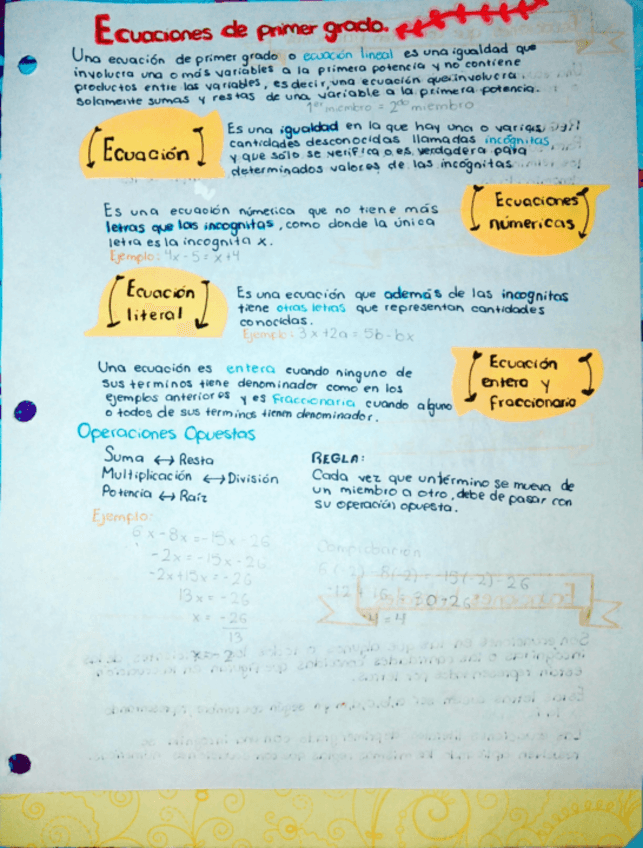 Ecuaciones de primer grado.
Una ecuación de primer grado o ecuación lineal es una igualdad que
involucra una o más variables a la primera potencia y no contiene
productos entre las variables, es decir, una ecuación que involucra
solamente sumas y restas de una variable a la primera potencia.
1er miembro = 2do miembro
Ecuación
Es una igualdad en la que hay una o varias
cantidades desconocidas llamadas incógnitas,
y que sólo se verifica o es verdadera para
determinados valores de las incógnitas
Es una ecuación númerica que no tiene más
letras que las incognitas, como donde la única
letra es la incognita x.
Ejemplo: 4x - 5 = x + 4
Ecuaciones
númericas
Ecuación
literal
Es una ecuación que además de las incognitas
tiene otras letras que representan cantidades
conocidas.
Ejemplo: 3x + 2a = 5b - bx
Una ecuación es entera cuando ninguno de
sus terminos tiene denominador como en los
ejemplos anteriores y es fraccionaria cuando alguno
o todos de sus terminos tienen denominador.
Ecuación
entera y
fraccionaria
Operaciones Opuestas
Suma ↔ Resta
Multiplicación ↔ División
Potencia ↔ Raíz
REGLA:
Cada vez que un término se mueva de
un miembro a otro, debe de pasar con
su operación opuesta.
Ejemplo:
6x - 8x = -15x - 26
-2x = -15x - 26
-2x + 15x = -26
13x = -26
x = -26
13
x = -2
Comprobación
6(-2) - 8(-2) = -15(-2) - 26
-12 + 16 = 30 - 26
4 = 4